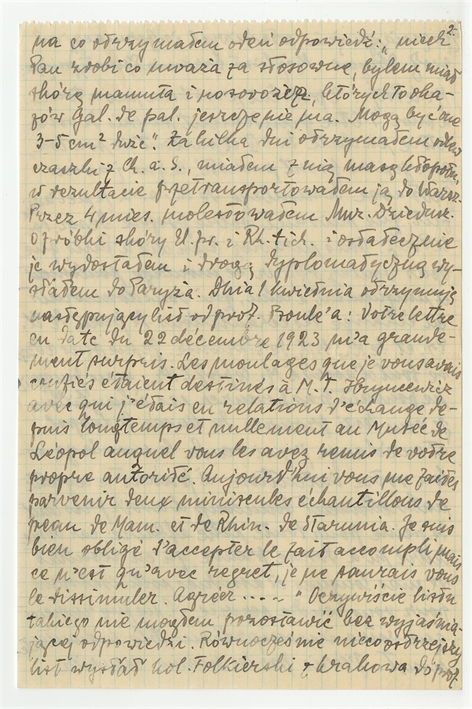 2.
na co otrzymałem odeń odpowiedź: „niech
Pan zrobi co uważa za stosowne, bylem miał
skórę mamuta i nosorożca, których to oka-
zów Gal. de pal. jeszcze nie ma. Mogą być one
3-5 cm² duże". Za kilka dni otrzymałem odlew
czaszki z Ch. a. S., miałem z nią masę kłopotu,
w rezultacie przetransportowałem ją do Warsz.
Przez 4 mies. molestowałem Muz. Dzieduz.
o próbki skóry El. pr. i Rh. tich. i ostatecznie
je wydostałem i drogą dyplomatyczną wy-
słałem do Paryża. Dnia 1 kwietnia otrzymuję
następujący list od prof. Boule'a: Votre lettre
en date du 22 décembre 1923 m'a grande-
ment surpris. Les moulages que je vous avais
confiés étaient destinés à M. J. Hryncewicz
avec qui j'étais en relations d'échange de-
puis longtemps et nullement au Musée de
Léopol auquel vous les avez remis de votre
propre autorité. Aujourd'hui vous me faites
parvenir deux minuscules échantillons de
peau de Mam. et de Rhin. de Starunia. Je suis
bien obligé d'accepter le fait accompli mais
ce n'est qu'avec regret, je ne saurais vous
le dissimuler. Agréer ..... " Oczywiście listu
takiego nie mogłem pozostawić bez wyjaśnia-
jącej odpowiedzi. Równocześnie nieco ostrzejszy
list wysłał kol. Folkierski z Krakowa do prof.